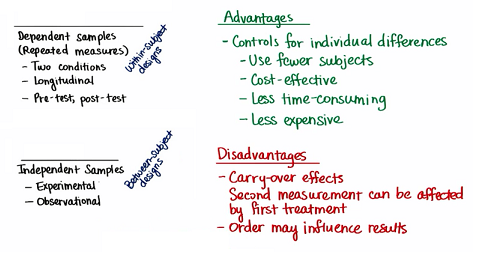 Dependent Samples
(Repeated measures)
- Two conditions
- Longitudinal
- Pre-test, post-test
Within-subject
designs
Independent Samples
- Experimental
- Observational
Between-subject
designs
Advantages
- Controls for individual differences
- Use fewer subjects
- Cost-effective
- Less time-consuming
- Less expensive
Disadvantages
- Carry-over effects
Second measurement can be affected
by first treatment
- Order may influence results